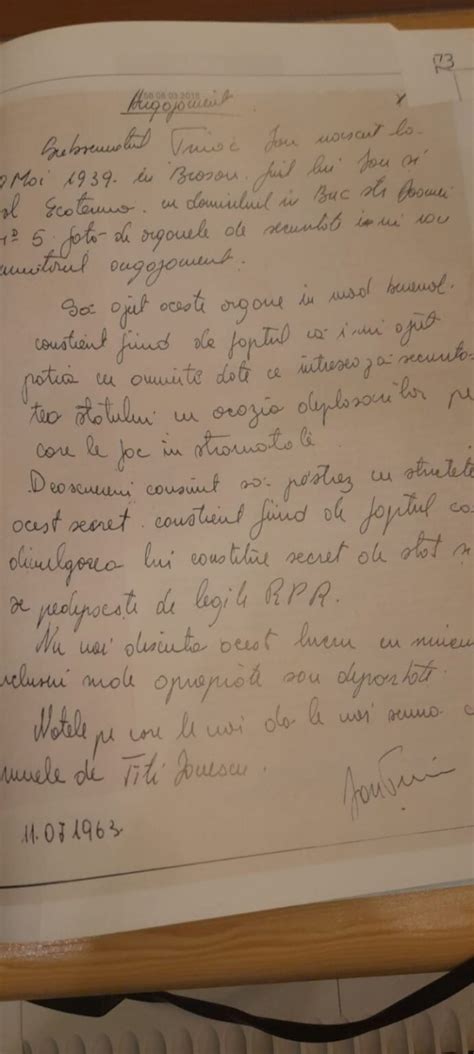 73
56 08.03.2018
Angajament
Subsemnatul Ion născut la
9 Mai 1939 în Brașov fiul lui Ion și
al Ecaterina cu domiciliul în Buc str
nr 5 față de organele de securitate îmi iau
următorul angajament.
Să ajut aceste organe în mod benevol.
conștient fiind de faptul că îmi ajut
patria cu anumite date ce interesează securita-
tea statului cu ocazia deplasărilor pe
care le fac în străinătate.
Deasemeni consimt să păstrez cu strictețe
acest secret. conștient fiind de faptul că
divulgarea lui constitue secret de stat și
se pedepsește de legile RPR.
Nu voi discuta acest lucru cu nimeni
inclusiv rude apropiate sau depărtate.
Notele pe care le voi da le voi semna cu
numele de Titi Ionescu.
11.07.1963